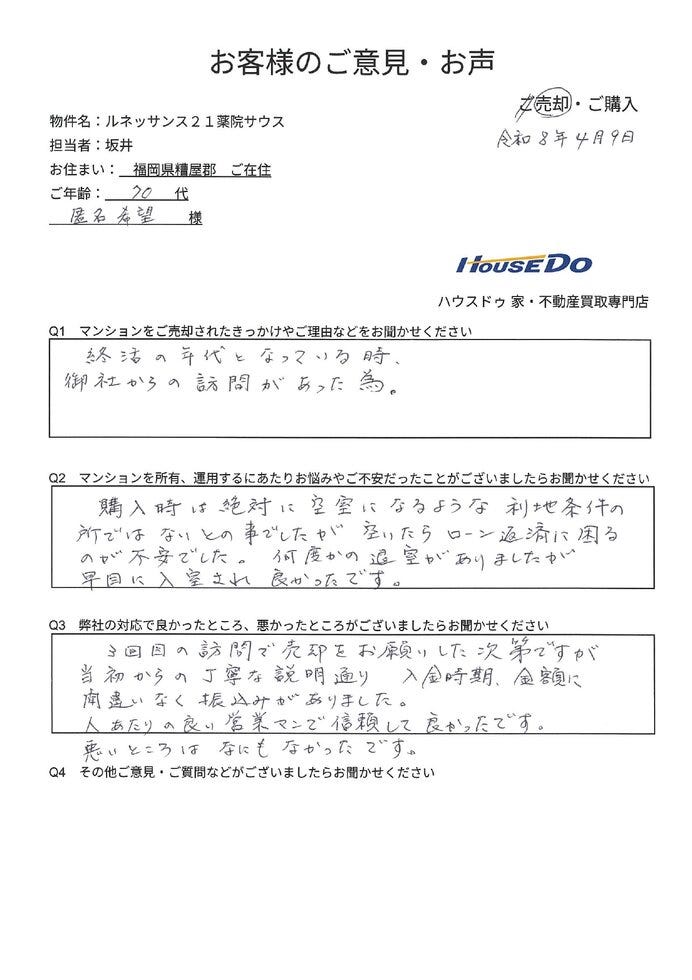 お客様のご意見・お声
ご売却・ご購入
物件名：ルネッサンス２１薬院サウス
令和8年4月9日
担当者：坂井
お住まい： 福岡県糟屋郡 ご在住
ご年齢： 70 代
匿名希望 様
HOUSEDO
ハウスドゥ 家・不動産買取専門店
Q1 マンションをご売却されたきっかけやご理由などをお聞かせください
終活の年代となっている時、
御社からの訪問があった為。
Q2 マンションを所有、運用するにあたりお悩みやご不安だったことがございましたらお聞かせください
購入時は絶対に空室になるような利地条件の
所ではないとの事でしたが空いたらローン返済に困る
のが不安でした。何度かの退室がありましたが
早目に入室され良かったです。
Q3 弊社の対応で良かったところ、悪かったところがございましたらお聞かせください
3回目の訪問で売却をお願いした次第ですが
当初からの丁寧な説明通り 入金時期、金額に
間違いなく振込みがありました。
人あたりの良い営業マンで信頼して良かったです。
悪いところはなにもなかったです。
Q4 その他ご意見・ご質問などがございましたらお聞かせください